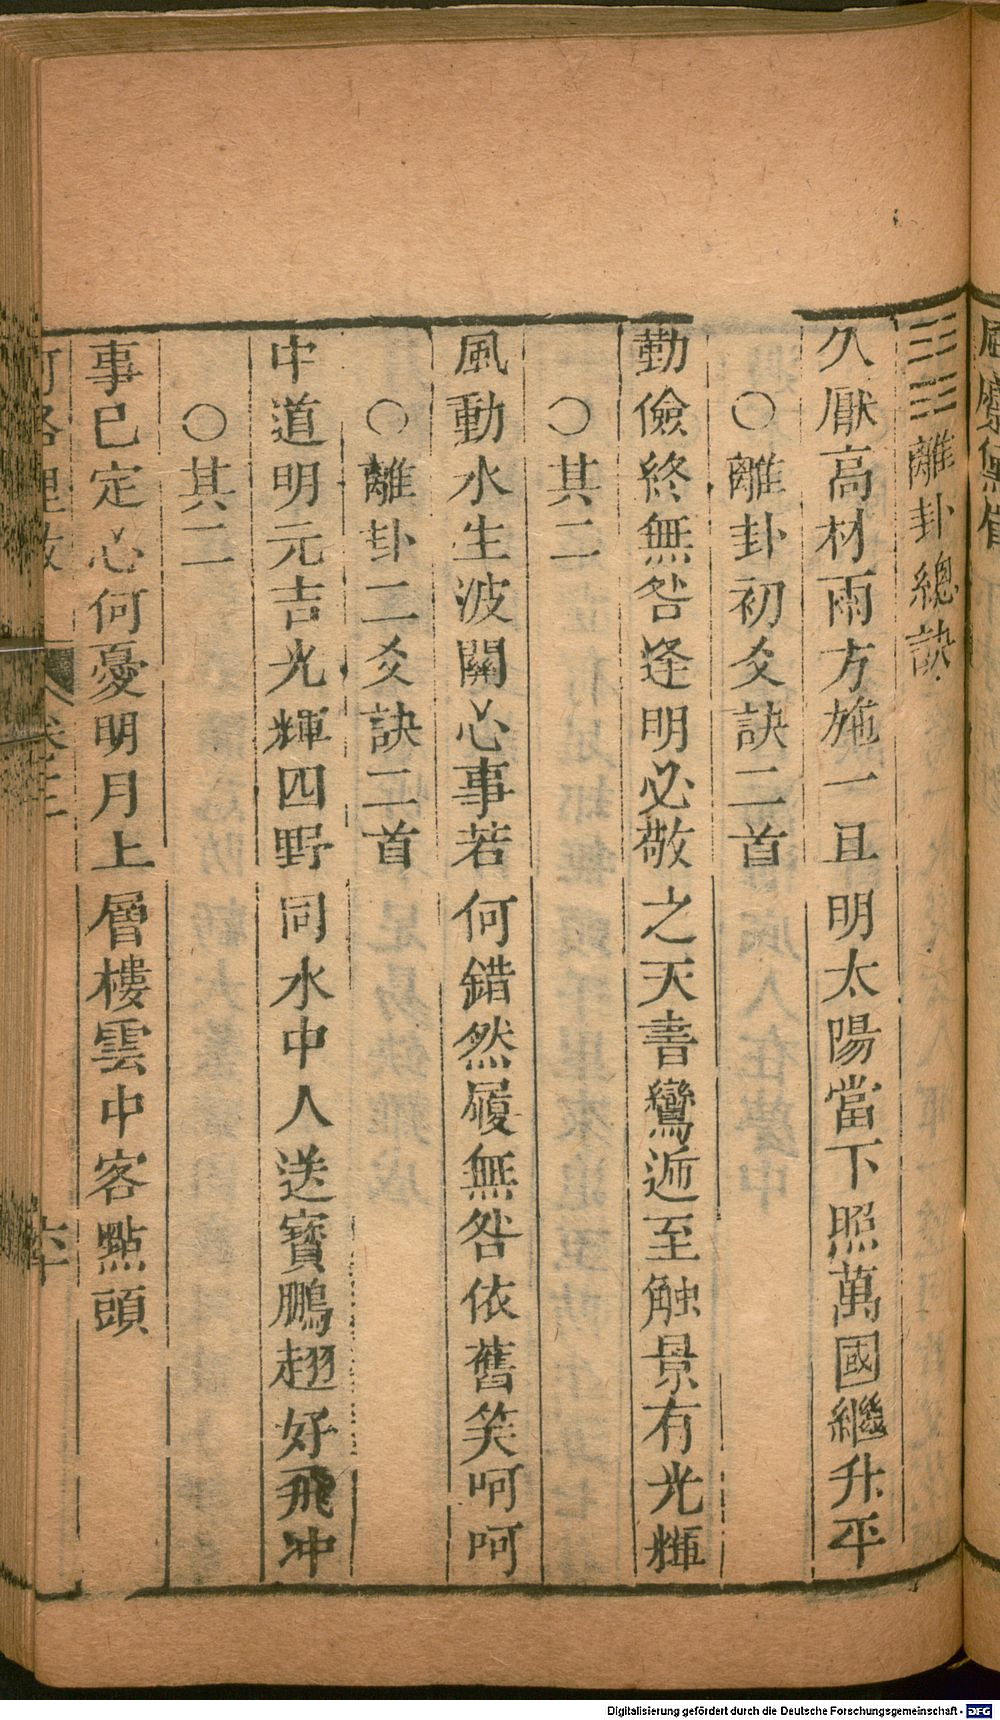 離卦總訣
久厭高材雨方施一旦明太陽當下照萬國繼升平
○離卦初爻訣二首
勤儉終無咎逢明必敬之天書鸞逓至触景有光輝
○其二
風動水生波關心事若何錯然履無咎依舊笑呵呵
○離卦二爻訣二首
中道明元吉光輝四野同水中人送寶鵬翅好飛冲
○其二
事已定心何憂明月上層樓雲中客點頭
Digitalisierung gefördert durch die Deutsche Forschungsgemeinschaft - DFG